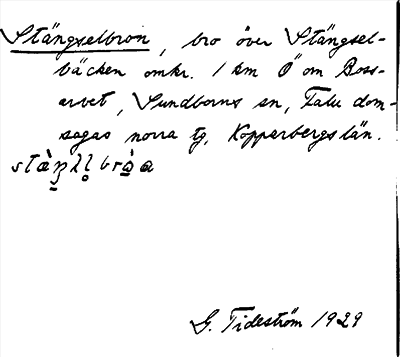 Stängselbron, bro över Stängsel-
bäcken omkr. 1 km Ö om Boss-
arvet, Sundborns sn, Falu dom-
sagas norra tg, Kopparbergs län.
G. Tideström 1929